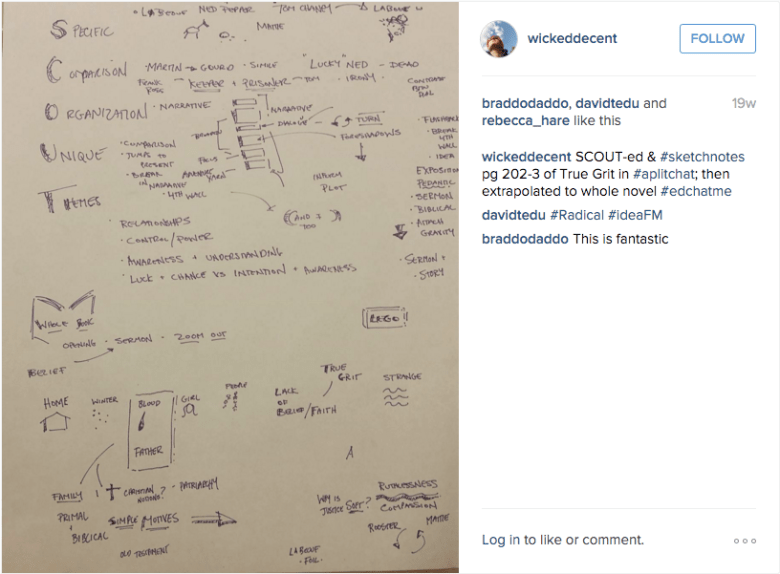 LABOEUF NED PEPPER TOM CHANEY LABOEUF
SPECIFIC
MATTIE
COMPARISON MARTIN GOURD · SIMILE "LUCKY" NED - DEAD
KEEPER + PRISONER - TOM IRONY
ORGANIZATION · NARRATIVE
NARRATIVE
DIALOGUE
TURN
FORESHADOWS
FLASHBACK
· BREAK
4TH
WALL
· IDEA
UNIQUE · COMPARISON
· JUMPS TO
PRESENT
· BREAK
IN NARRATIVE
· 4TH WALL
INFORM
PLOT
EXPOSITION
PEDANTIC
· SERMON
· BIBLICAL
· ATTACH
GRAVITY
THEMES
(AND I
TOO)
· RELATIONSHIPS
· CONTROL/POWER
· AWARENESS + UNDERSTANDING
· LUCK + CHANCE VS INTENTION + AWARENESS
· SERMON +
· STORY
WHOLE BOOK
LEGO
OPENING · SERMON - ZOOM OUT
BELIEF
HOME WINTER BLOOD GIRL PEOPLE
FATHER
LACK
OF
BELIEF/FAITH
TRUE
GRIT
STRANGE
FAMILY CHRISTIAN ? - PATRIARCHY
PRIMAL
+
BIBLICAL
SIMPLE MOTIVES
OLD TESTAMENT
WHY IS
JUSTICE SOFT?
RUTHLESSNESS
COMPASSION
ROOSTER MATTIE
LABOEUF
- FOIL
wickeddecent
FOLLOW
braddodaddo, davidtedu and
rebecca_hare like this
19w
wickeddecent SCOUT-ed & #sketchnotes
pg 202-3 of True Grit in #aplitchat; then
extrapolated to whole novel #edchatme
davidtedu #Radical #ideaFM
braddodaddo This is fantastic
Log in to like or comment.